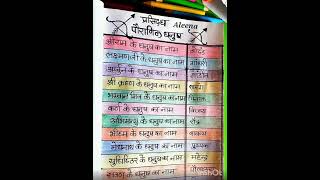 प्रसिद्ध Aleena
पौराणिक धनुष
श्रीराम के धनुष का नाम कोदंड
लक्ष्मण जी के धनुष का नाम
अर्जुन के धनुष का नाम गांडीव
श्री कृष्ण के धनुष का नाम
भगवान शिव के धनुष का नाम पिनाक
कर्ण के धनुष का नाम विजय
अभिमन्यु के धनुष का नाम रौद्र
भीष्म के धनुष का नाम वायव्य
मेघनाथ के धनुष का नाम
युधिष्ठिर के धनुष का नाम महेन्द्र
के धनुष का नाम